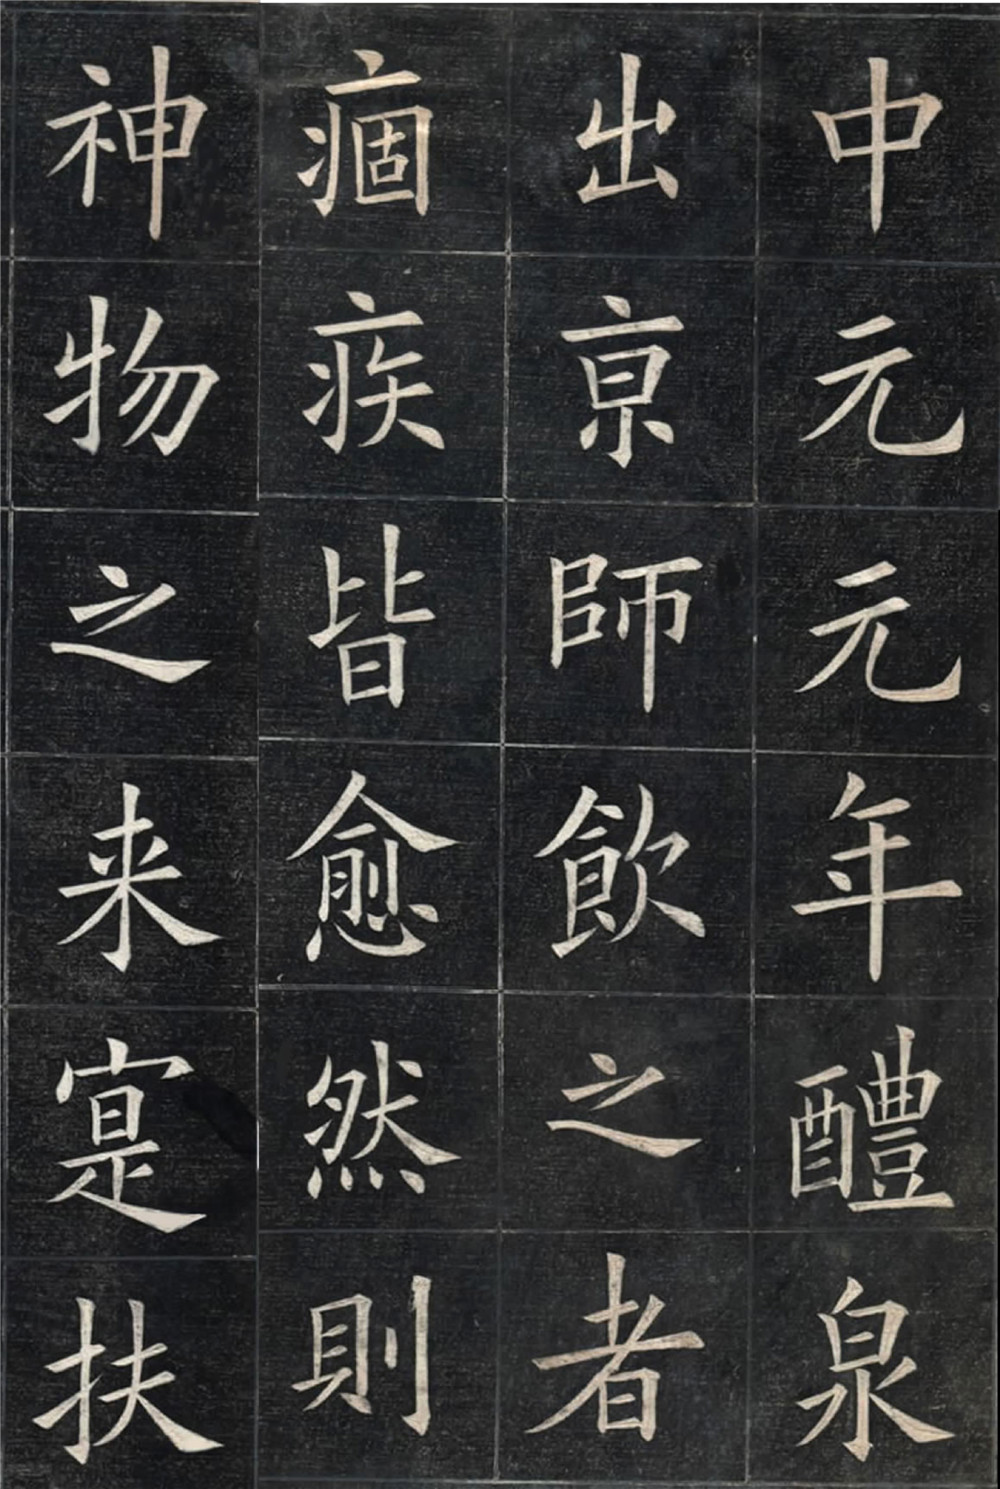 中元元年醴泉
出亰師飲之者
痼疾皆愈然則
神物之来寔扶